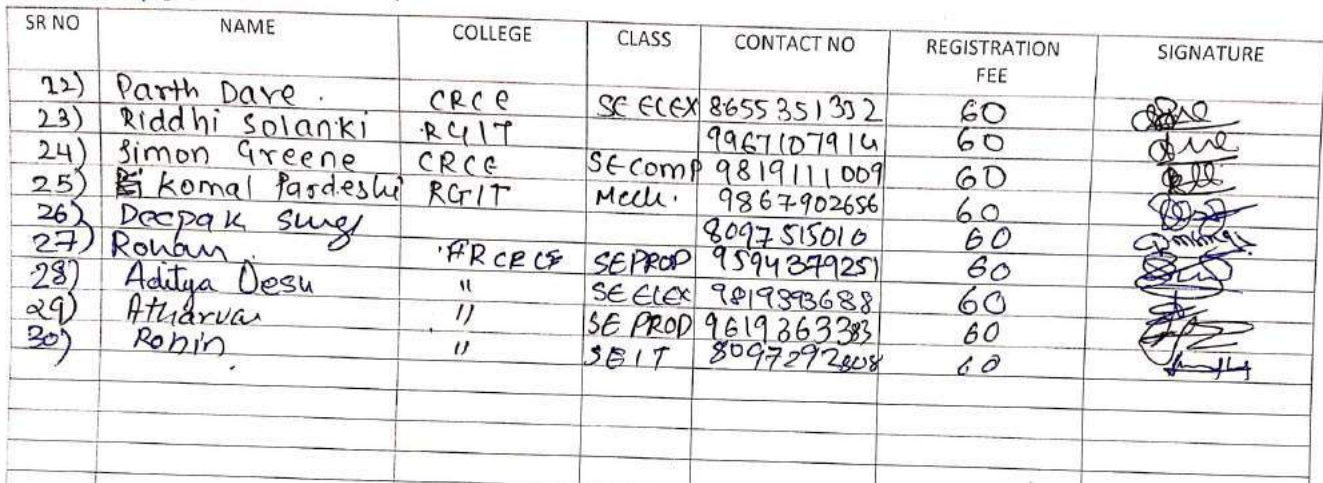 SR NO NAME COLLEGE CLASS CONTACT NO REGISTRATION FEE SIGNATURE
22) Parth Dave . CRCE SE ELEX 8655351332 60
23) Riddhi Solanki RGIT 9967107914 60
24) Simon Greene CRCE SE Comp 9819111009 60
25) Komal Pardeshi RGIT Mech. 9867902656 60
26) Deepak 8097515010 60
27) Rohan . FR CRCE SE PROD 9594379251 60
28) Aditya Desu " SE ELEX 9819393688 60
29) Atharva " SE PROD 9619363383 60
30) Robin . " SE IT 8097292808 60